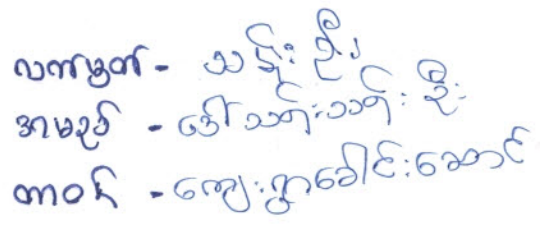 လက်မှတ် - သန်းဦး
အမည် - ဒေါ်သန်းသန်းဦး
တာဝန် - ကျေးရွာခေါင်းဆောင်